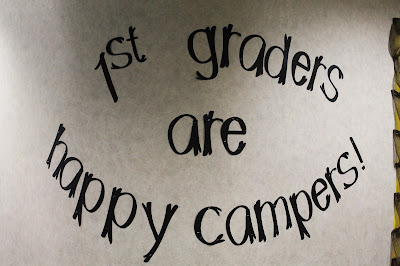 1st graders
are
happy campers!